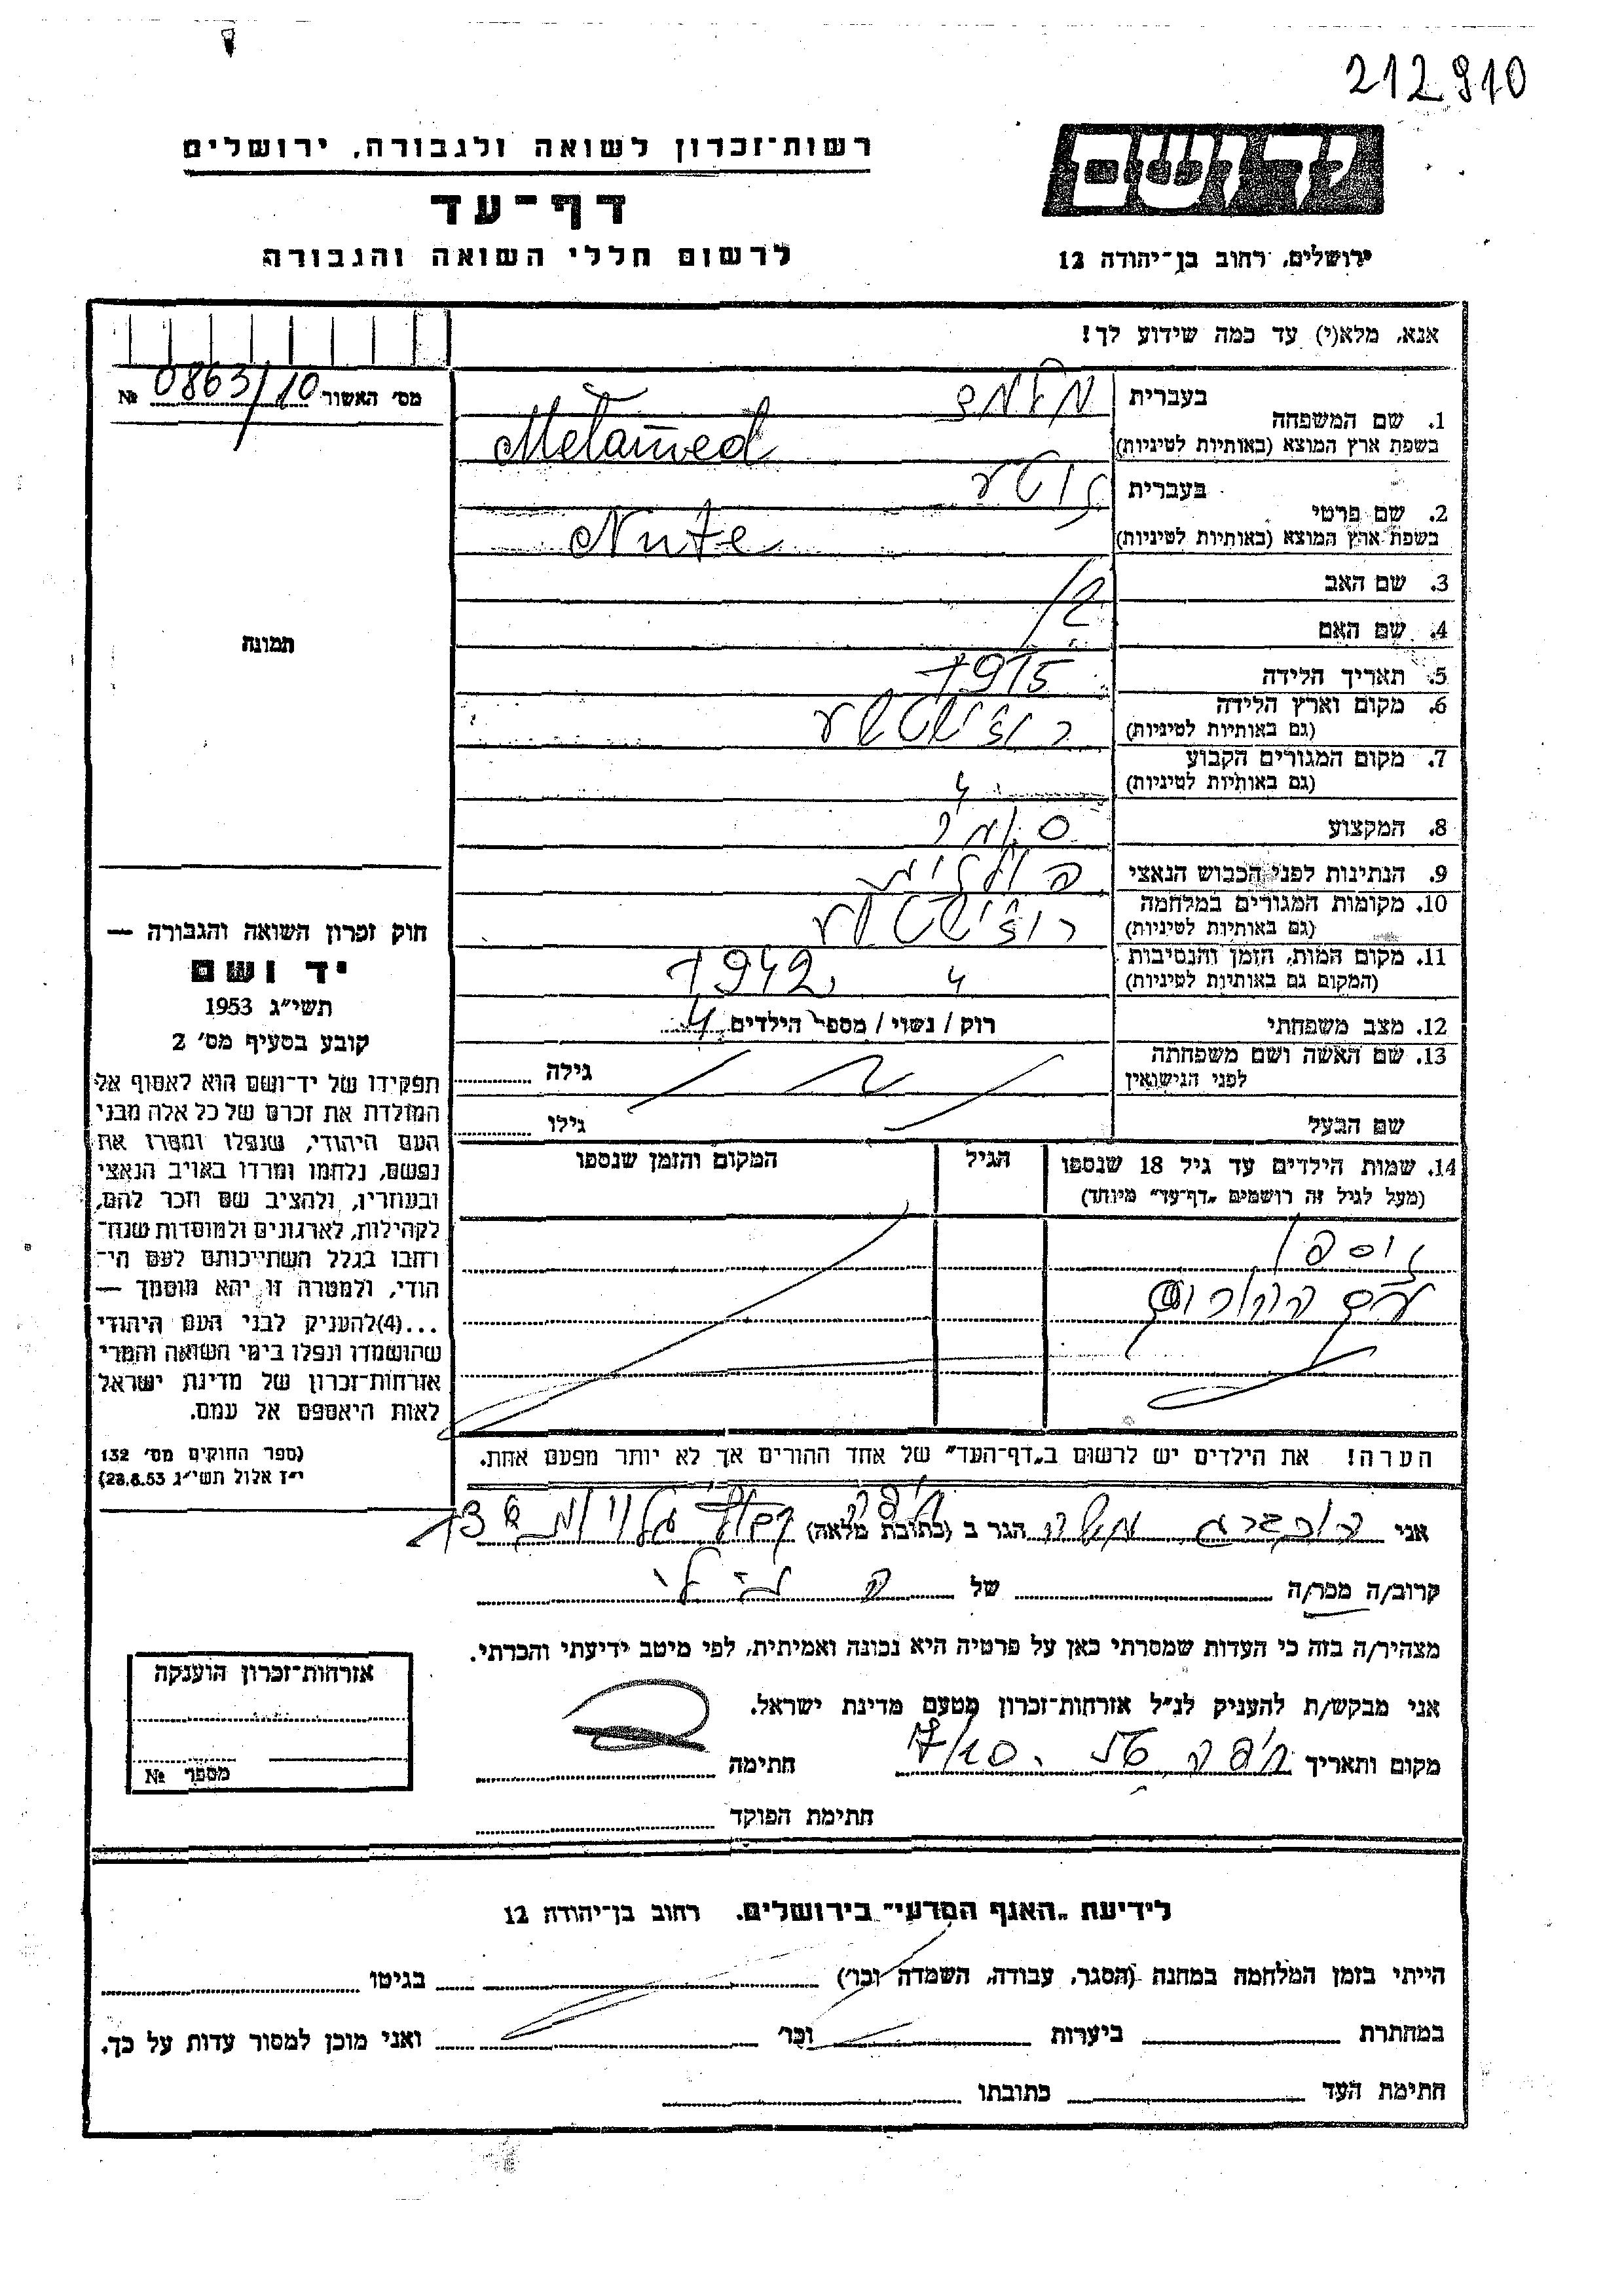 212910
רשות־זכרון לשואה ולגבורה, ירושלים
דף־עד
לרשום חללי השואה והגבורה
יד ושם
ירושלים, רחוב בן־יהודה 12
אנא, מלא(י) עד כמה שידוע לך!
מס׳ האשור 0863/10 №
1. שם המשפחה
בעברית מלמד
בשפת ארץ המוצא (באותיות לטיניות) Melamed
2. שם פרטי
בעברית נוטע
בשפת ארץ המוצא (באותיות לטיניות) Nute
3. שם האב
4. שם האם
5. תאריך הלידה 1915
6. מקום וארץ הלידה
(גם באותיות לטיניות) רוז׳ישטשע
7. מקום המגורים הקבוע
(גם באותיות לטיניות) 4
8. המקצוע סוחר
9. הנתינות לפני הכבוש הנאצי פולנית
10. מקומות המגורים במלחמה
(גם באותיות לטיניות) רוז׳ישטשע
11. מקום המות, הזמן והנסיבות
(המקום גם באותיות לטיניות) 4 1942
12. מצב משפחתי רוק / נשוי / מספר הילדים 4
13. שם האשה ושם משפחתה
לפני הנישואין גילה
שם הבעל גילו
14. שמות הילדים עד גיל 18 שנספו
(מעל לגיל זה רושמים „דף־עד״ מיוחד)
הגיל
המקום והזמן שנספו
נספו
עם ההורים
הערה! את הילדים יש לרשום ב„דף־העד״ של אחד ההורים אך לא יותר מפעם אחת.
תמונה
חוק זכרון השואה והגבורה —
יד ושם
תשי״ג 1953
קובע בסעיף מס׳ 2
תפקידו של יד־ושם הוא לאסוף אל
המולדת את זכרם של כל אלה מבני
העם היהודי, שנפלו ומסרו את
נפשם, נלחמו ומרדו באויב הנאצי
ובעוזריו, ולהציב שם וזכר להם,
לקהילות, לארגונים ולמוסדות שנח־
רחבו בגלל השתייכותם לעם הי־
הודי, ולמטרה זו יהא מוסמך —
...(4)להעניק לבני העם היהודי
שהושמדו ונפלו בימי השואה והמרי
אזרחות־זכרון של מדינת ישראל
לאות היאספם אל עמם.
(ספר החוקים מס׳ 132
י״ז אלול תשי״ג 28.8.53)
אני משה הגר ב (כתובת מלאה) חיפה גלויות 13
קרוב/ה מכר/ה של
מצהיר/ה בזה כי העדות שמסרתי כאן על פרטיה היא נכונה ואמיתית, לפי מיטב ידיעתי והכרתי.
אני מבקש/ת להעניק לנ״ל אזרחות־זכרון מטעם מדינת ישראל.
מקום ותאריך חיפה חתימה
חתימת הפוקד
אזרחות־זכרון הוענקה
מספר №
לידיעת „האגף המדעי״ בירושלים, רחוב בן־יהודה 12
הייתי בזמן המלחמה במחנה (הסגר, עבודה, השמדה וכו׳) בגיטו
במחתרת ביערות וכו׳ ואני מוכן למסור עדות על כך.
חתימת העד כתובתו